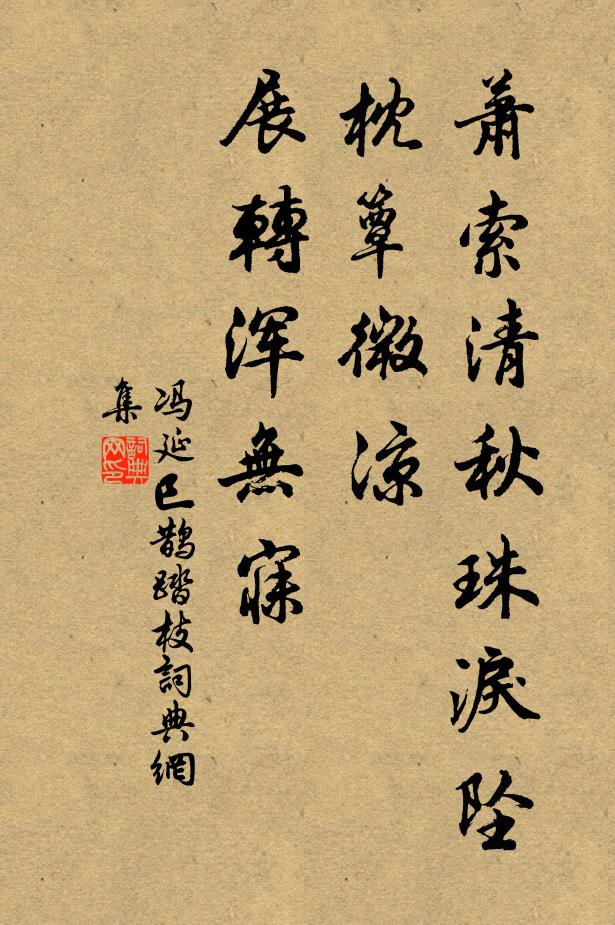 蕭索清秋珠淚墜
枕簟微涼
展轉渾無寐
冯延巳鵲踏枝詞典網
集
詞典网印